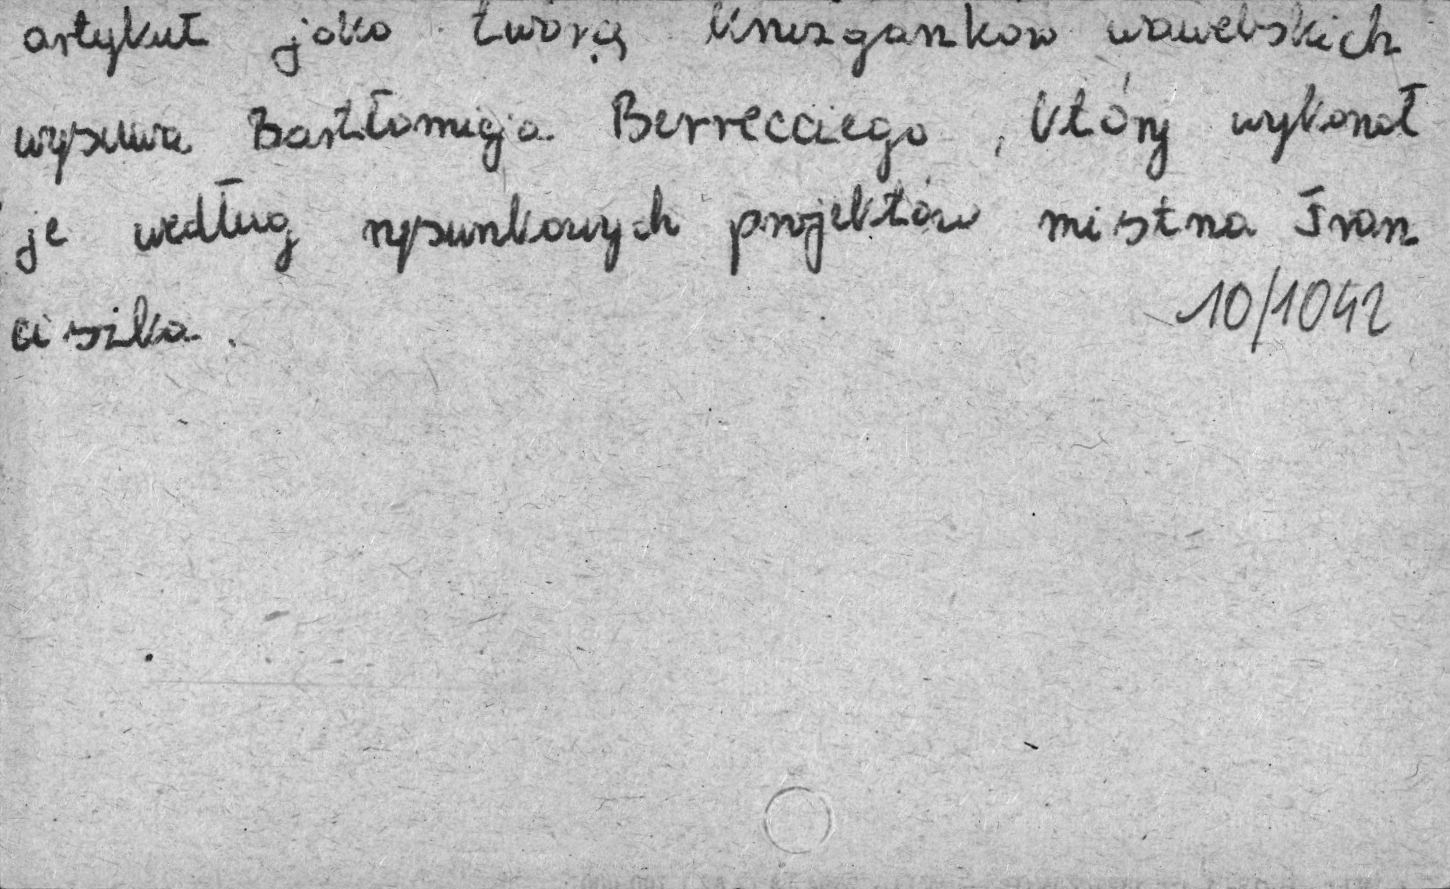 artykuł jako twórcę Krużganków wawelskich
wysuwa Bartłomieja Berrecciego, który wykonał
je według rysunkowych projektów mistrza Fran
ciszka.
10/1042